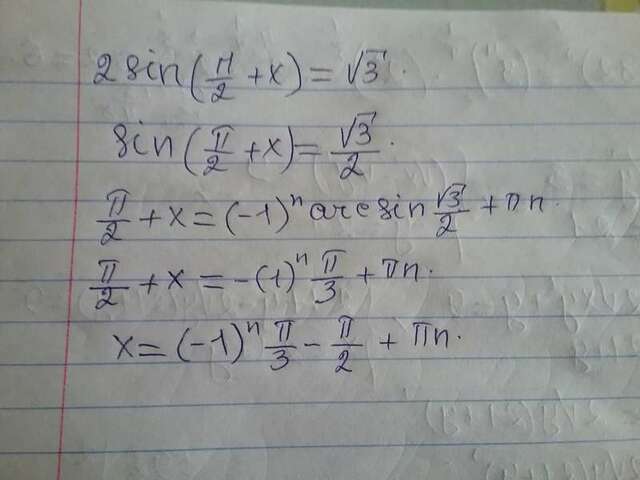 2 sin(π/2 + x) = √3.
sin(π/2 + x) = √3/2.
π/2 + x = (-1)ⁿ arc sin √3/2 + πn.
π/2 + x = -(1)ⁿ π/3 + πn.
x = (-1)ⁿ π/3 - π/2 + πn.